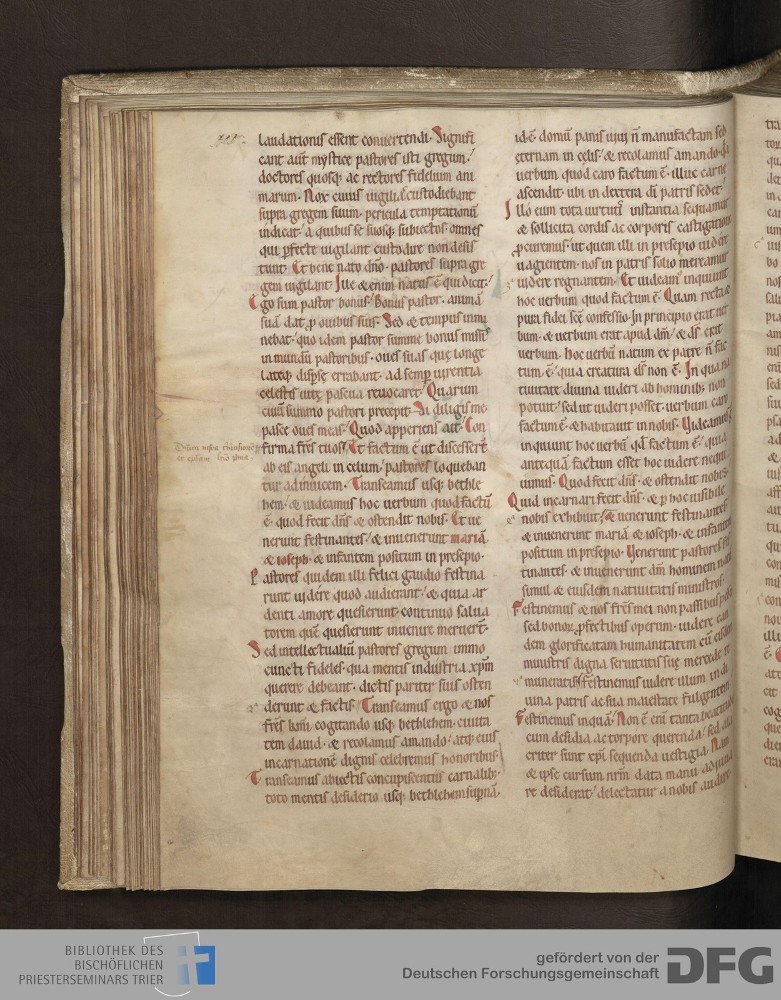 laudationis essent conuertendi. Signifi
cant aut̄ mystice pastores isti gregum.
doctores quosq; ac rectores fidelium ani
marum. Nox cuius uigilias custodiebant
supra gregem suum. pericula temptationū
indicat. a quibus se suosq; subiectos omnes
qui ꝑfecte uigilant custodire non desis
tunt. Et bene nato dn̄o. pastores supra gre
gem uigilant. Ille & enim natus ē qui dicit.
Ego sum pastor bonus. Bonus pastor. animā
suā dat ꝓ ouibus suis. Sed & tempus inmi
nebat. quo idem pastor summe bonus missis
in mundū pastoribus. oues suas quę longe
lateq; dispse errabant. ad semꝑ uirentia
celestis uitę pascua reuocaret. Quarum
cuiū summo pastori precepit. Si diligis me
pasce oues meas. Quod apperiens ait. Con
firma fr̄es tuos. Et factum ē ut discesserēt
ab eis angeli in celum. pastores loqueban
tur adinuicem. Transeamus usq; bethle
hem. & uideamus hoc uerbum quod factū
ē. quod fecit dn̄s & ostendit nobis. Et ue
nerunt festinantes. & inuenerunt mariā
& ioseph. & infantem positum in presepio.
Pastores quidem illi felici gaudio festina
runt uidere quod audierant. & quia ar
denti amore quesierunt. continuo salua
torem quē quesierunt inuenire meruert̄.
Sed intellectualiū pastores gregum immo
cuncti fideles. qua mentis industria xp̄m
querere debeant. dictis pariter suis osten
derunt & factis. Transeamus ergo & nos
fr̄es km̄i cogitando usq; bethlehem. ciuita
tem dauid. & recolamus amando. atq; eius
incarnationē dignis celebremus honoribus.
Transeamus abiectis concupiscentiis carnalib;
toto mentis desiderio usq; bethlehem supnā.
id ē domū panis uiui n̄ manufactam sed
ęternam in cęlis. & recolamus amando. qa
uerbum quod caro factum ē. illuc carne
ascendit. ubi in dextera dī patris sedet.
Illo eum tota uirtutū instantia sequamur
& sollicita cordis ac corporis castigatione
ꝓcuremus. ut quem illi in presepio uidere
uagientem. nos in patris solio mereamur
uidere regnantem. Et uideam̄ inquiunt
hoc uerbum quod factum ē. Quam recta &
pura fidei scę̄ confessio. In principio erat uer
bum. & uerbum erat apud dm̄. & ds̄ erat
uerbum. hoc uerbū natum ex patre n̄ fac
tum ē. quia creatura ds̄ non ē. In qua na
tiuitate diuina uideri ab hominib; non
potuit. sed ut uideri posset. uerbum caro
factum ē. & habitauit in nobis. Uideamus
inquiunt hoc uerbū qd̄ factum ē. quia
antequā factum esset hoc uidere nequi
uimus. Quod fecit dn̄s. & ostendit nobis.
Quid incarnari fecit dn̄s. & ꝑ hoc uisibile
nobis exhibuit. & uenerunt festinantes
& inuenerunt mariā & ioseph. & infantem
positum in presepio. Uenerunt pastores fes
tinantes. & inuenerunt dm̄ hominem natū
simul & eiusdem natiuitatis ministros.
Festinemus & nos fr̄es mei non passibus pedū
sed bonoꝝ ꝓfectibus operum. uidere ean
dem glorificatam humanitatem cū eisdem
ministris digna seruitutis suę mercede re
muneratis. festinemus uidere illum in di
uina patris ac sua maiestate fulgentem.
Festinemus inquā. Non ē enī tanta beatitudo
cum desidia ac torpore querenda. sed ala
criter sunt xp̄i sequenda uestigia. Nam
& ipse cursum nr̄m data manu adiuua
re desiderat. delectatur a nobis audire
BIBLIOTHEK DES
BISCHÖFLICHEN
PRIESTERSEMINARS TRIER
gefördert von der
Deutschen Forschungsgemeinschaft
DFG